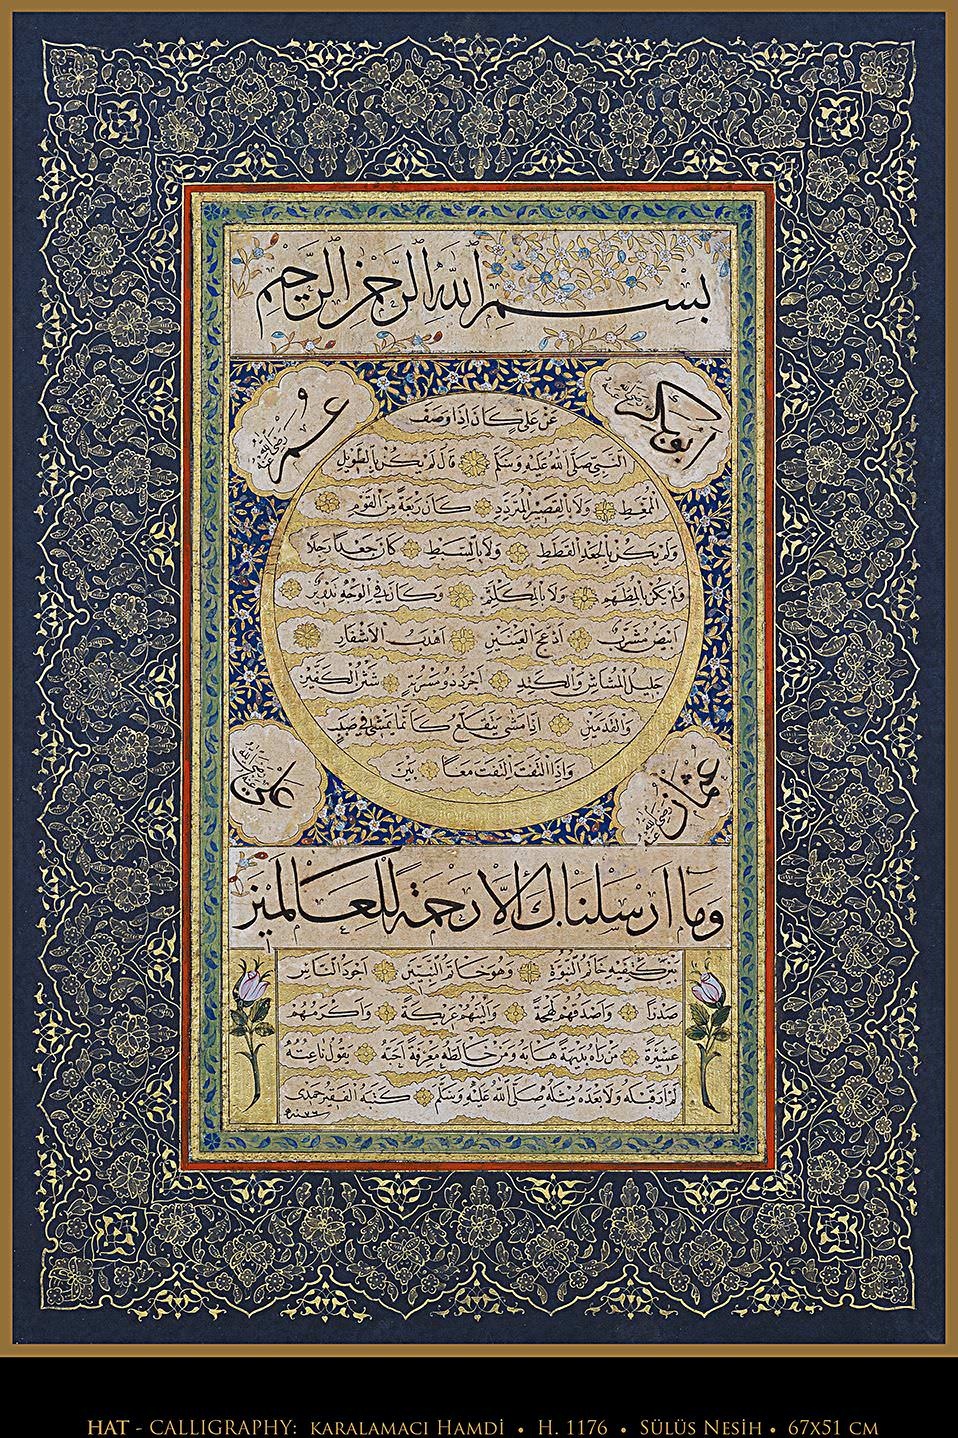 بسم الله الرحمن الرحيم
ابو بكر رضي الله عنه
عمر رضي الله عنه
عن علي كان اذا وصف
النبي صلى الله عليه وسلم قال لم يكن بالطويل
الممغط ولا بالقصير المتردد كان ربعة من القوم
ولم يكن بالجعد القطط ولا بالسبط كان جعدا رجلا
ولم يكن بالمطهم ولا بالمكلثم وكان في الوجه تدوير
ابيض مشرب ادعج العينين اهدب الاشفار
جليل المشاش والكتد اجرد ذو مسربة شثن الكفين
والقدمين اذا مشى يتقلع كانما يمشي في صبب
واذا التفت التفت معا بين
عثمان رضي الله عنه
علي رضي الله عنه
وما ارسلناك الا رحمة للعالمين
بين كتفيه خاتم النبوة وهو خاتم النبيين اجود الناس
صدرا واصدقهم لهجة والينهم عريكة واكرمهم
عشيرة من رآه بديهة هابه ومن خالطه معرفة احبه يقول ناعته
لم ار قبله ولا بعده مثله صلى الله عليه وسلم كتبه الفقير حمدي
HAT - CALLIGRAPHY: KARALAMACI HAMDİ • H. 1176 • SÜLÜS NESİH • 67X51 CM